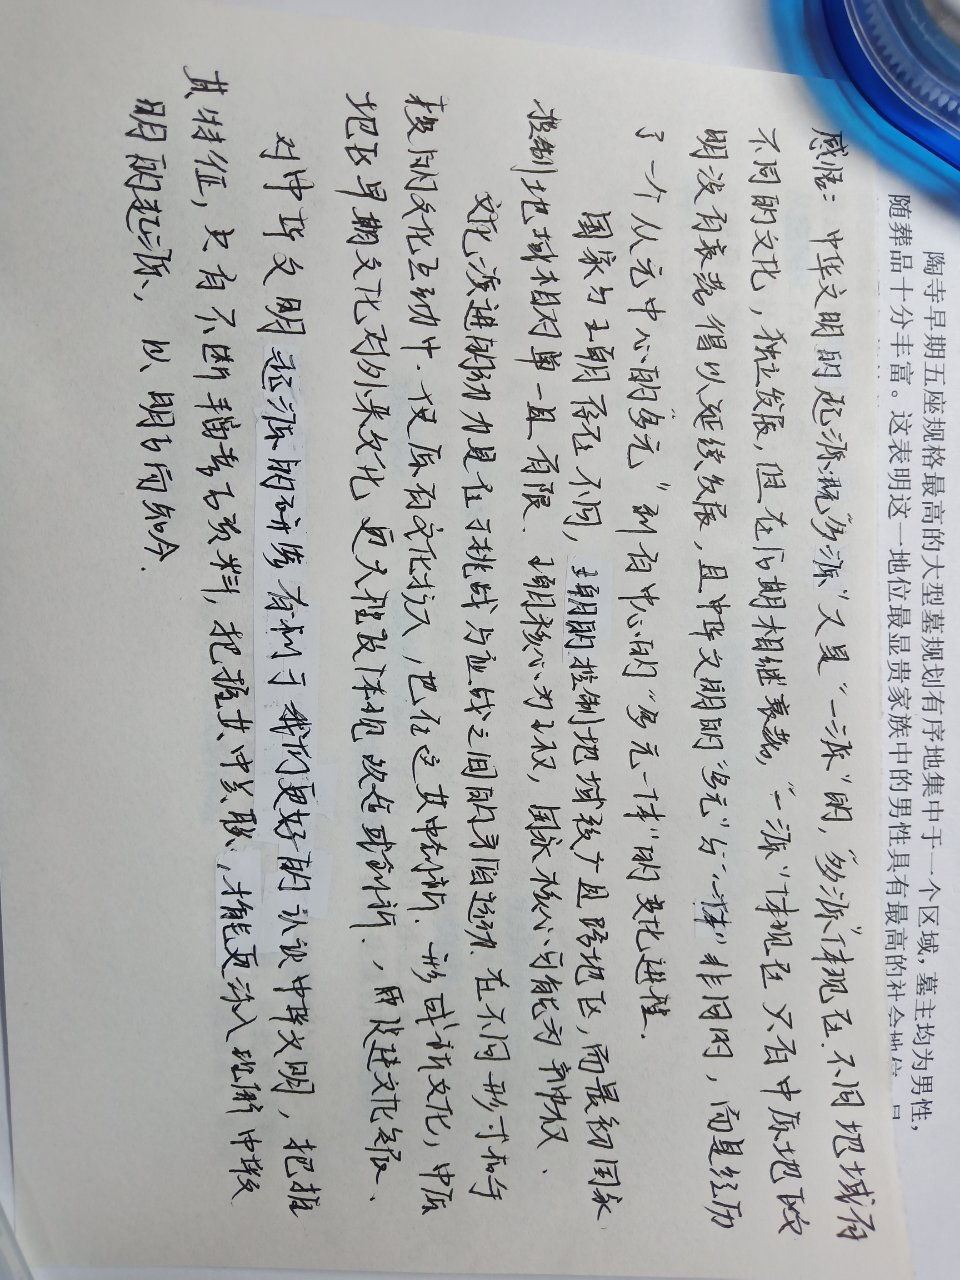 陶寺早期五座规格最高的大型墓规划有序地集中于一个区域，墓主均为男性，
随葬品十分丰富。这表明这一地位最显贵家族中的男性具有最高的社会地位
感悟：中华文明的起源既“多源”又是“一源”的，“多源”体现在不同地域有
不同的文化，独立发展，但在后期相继衰落，“一源”体现在只有中原地区文
明没有衰落得以延续发展，且中华文明的“多元”与“一体”非旧的，而是经历
了一个从“无中心的多元”到有中心的“多元一体”的变化进程。
国家与王朝存在不同，王朝的控制地域较广且跨地区，而最初国家
控制地域相对单一且有限、王朝核心为王权，国家核心可能为神权、
文化演进的动力是在于挑战与应战之间的矛盾运动、在不同形式和手
段的文化互动中、使原有文化扩大，已在这其中创新、形成新文化，中原
地区早期文化对外来文化更大程度体现改造或创新、，用促进文化发展、
对中华文明起源的研究有利于我们更好的认识中华文明，把握
其特征，只有不断丰富考古资料，把握其中关联，才能更深入理解中华文
明的起源，以明古而知今.